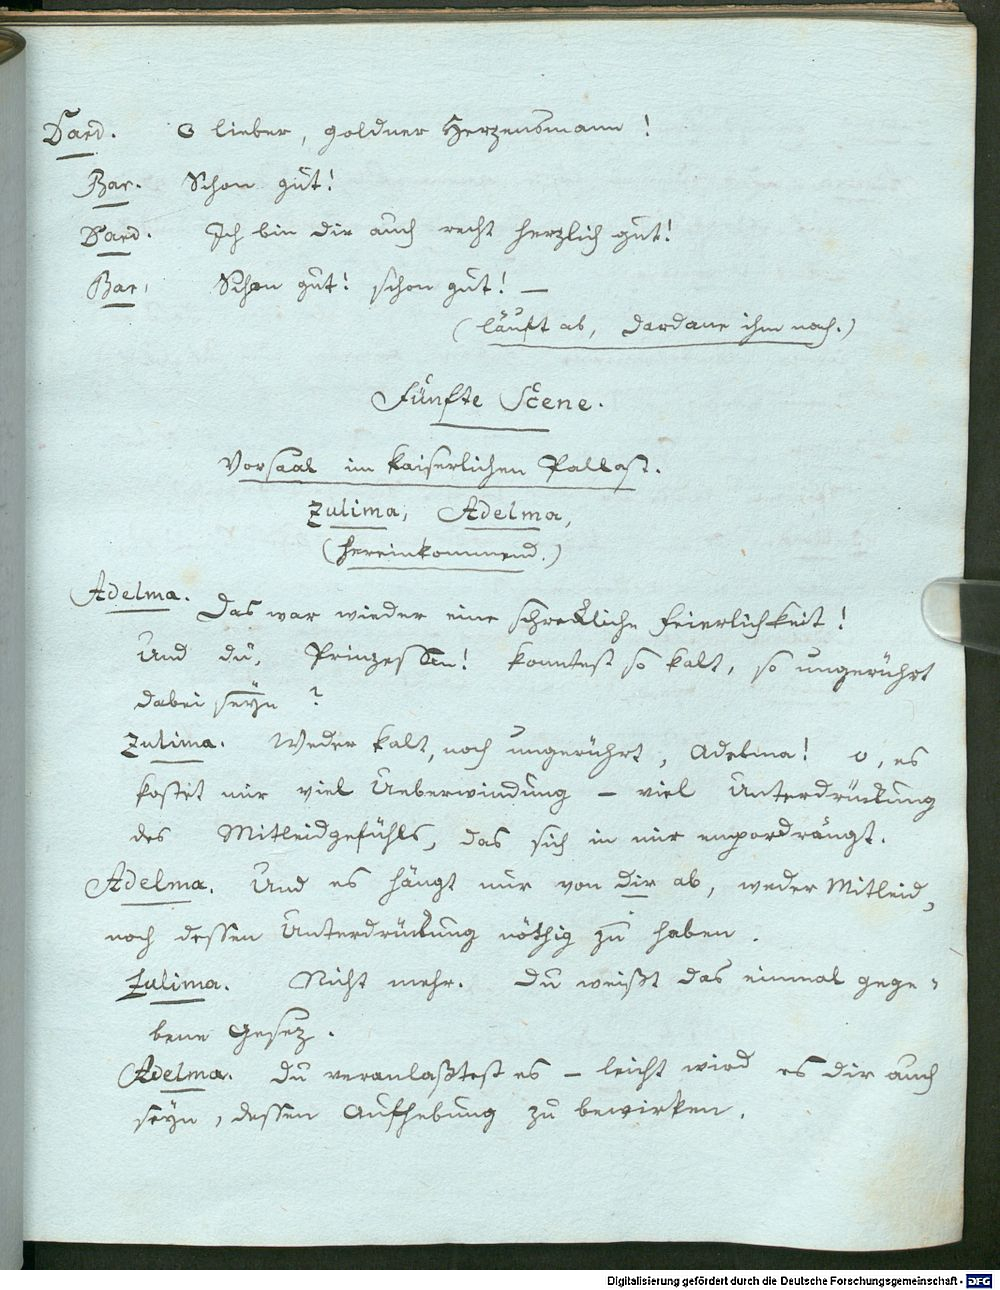 Dard. O lieber, goldner Herzensmann!
Bar. Schon gut!
Dard. Ich bin dir auch recht herzlich gut!
Bar. Schon gut! schon gut! —
(läuft ab, Dardane ihm nach.)
Fünfte Scene.
Vorsaal im kaiserlichen Pallast.
Zulima, Adelma,
(hereinkommend.)
Adelma. Das war wieder eine schreckliche Feierlichkeit!
Und du, Prinzessin! konntest so kalt, so ungerührt
dabei seÿn?
Zulima. Weder kalt, noch ungerührt, Adelma! o, es
kostet mir viel Ueberwindung — viel Unterdrückung
des Mitleidgefühls, das sich in mir empordrängt.
Adelma. Und es hängt nur von dir ab, weder Mitleid,
noch dessen Unterdrückung nöthig zu haben.
Zulima. Nicht mehr. Du weißt das einmal gege-
bene Gesez.
Adelma. Du veranlaßtest es — leicht wird es dir auch
seÿn, dessen Aufhebung zu bewirken.
Digitalisierung gefördert durch die Deutsche Forschungsgemeinschaft - DFG